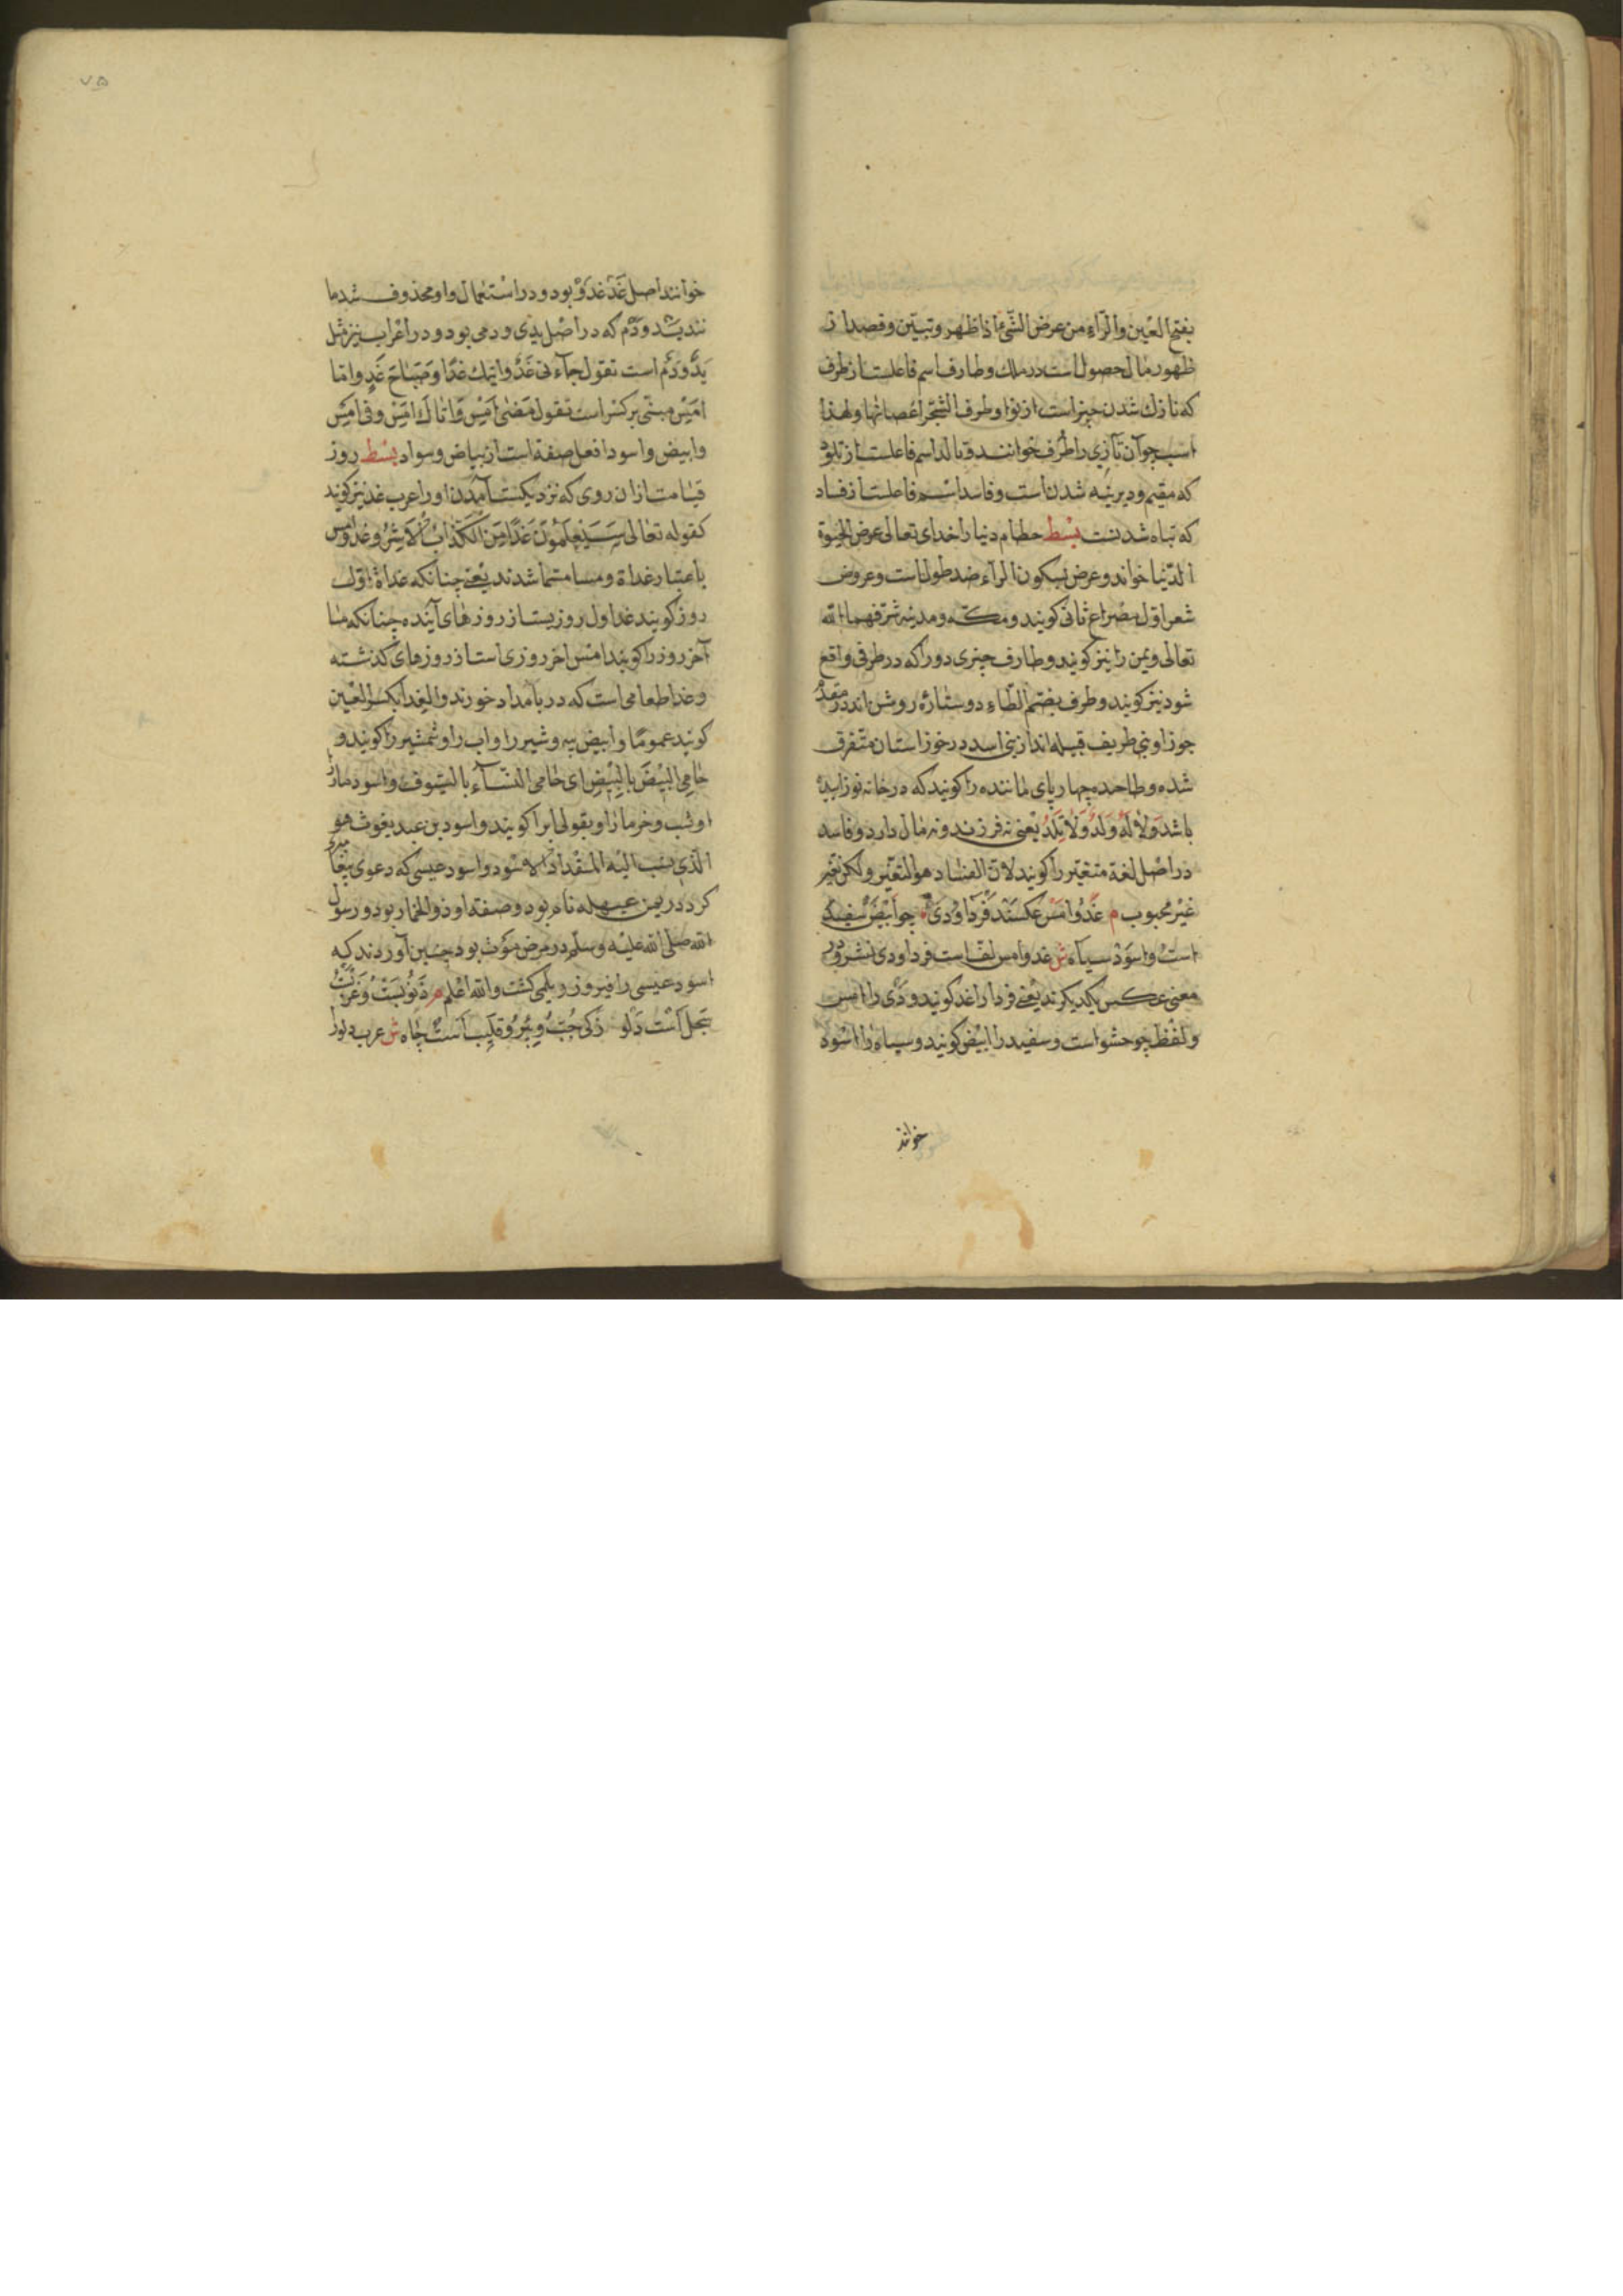 بفتح العین والرّاء من عرض الشّئ اذا ظهر وتبیّن وقصد از
ظهور مال حصول است در ملك وطارف اسم فاعلست از طرف
که نازك شدن چیز است از نو اوطرف الشّجر اغصانها ولهذا
اسب جوان تازی را طرف خوانند وتالد اسم فاعلست از تلود
که مقیم ودیرینه شدن است وفاسد اسم فاعلست از فساد
که تباه شدنست بسط حطام دنیا را خدای تعالی عرض الحیوة
الدّنیا خواند وعرض بسکون الرّاء ضد طول است وعروض
شعر اول مصراع ثانی کویند ومکّه ومدینه شرّفهما الله
تعالی ویمن را نیز کویند وطارف چیزی دور را که در طرفی واقع
شود نیز کویند وطرف بضم الطّاء دوستارۀ روشن اند در مقدّم
جوزا وبنی طریف قبیله اند از بنی اسد در خوزستان متفرق
شده وطاحده چهارپای ماننده را کویند که در خانه نو زاییده
باشد ولا له ولد ولا تلد یعنی نه فرزند ونه مال دارد وفاسد
در اصل لغة متغیّر را کویند لانّ الفساد هو التغیّر ولکن تغیّر
غیر محبوب م غد وامس عکسند فردا ودی چو ابیض سفید
است واسود سیاه ش غد وامس لفّ است فردا ودی نشر ودر
معنی عکس یکدیکرند یعنی فردا را غد کویند ودی را امس
ولفظ چو حشو است وسفید را ابیض کویند وسیاه را اسود
خوانند
٧٥
خوانند اصل غد غدو بود ودر استعمال واو محذوف شد ما
نند ید ودم که در اصل یدی ودمی بود ودر اعراب نیز مثل
ید ودم است تقول جاءنی غد واتیك غدًا وصباح غدٍ واما
امس مبنی بر کسر است تقول مضی امس واتاك امس وفی امس
وابیض واسود افعل صفة است از بیاض وسواد بسط روز
قیامت از ان روی که نزدیکست آمدن او را عرب غد نیز کویند
کقوله تعالی سَیَعْلَمُونَ غَدًا مَنِ الْکَذَّابُ الْاَشِرُ وغد وامس
باعتبار غداة ومسا مسمّا شدند یعنی چنانکه غداة اول
روز کویند غد اول روزیست از روزهای آینده چنانکه مسا
آخر روز را کویند امس اخر روزی است از روزهای کذشته
وغدا طعامی است که در بامداد خورند والغذا بکسر الغین
کویند عموما وابیض پیه وشیر را واب را وشمشیر را کویند و
حامی البیض بالبیض ای حامی النّساء بالسّیوف واسود مار را
وشب وخرما را وبقولی ابر را کویند واسود بن عبد یغوث هو
الّذی ینسب الیه المقداد الاسود واسود عیسی که دعوی پیغامبری
کرد در یمن عیهله نام بود وصفة او ذو الخمار بود ورسول
الله صلی الله علیه وسلم در مرض موت بود چنین آوردند که
اسود عیسی را فیروز ویلمی کشت والله اعلم م ذنوبست وغرب
سجل است دلو رکی جبّ وبئر وقلیب است چاه ش عرب دلو را